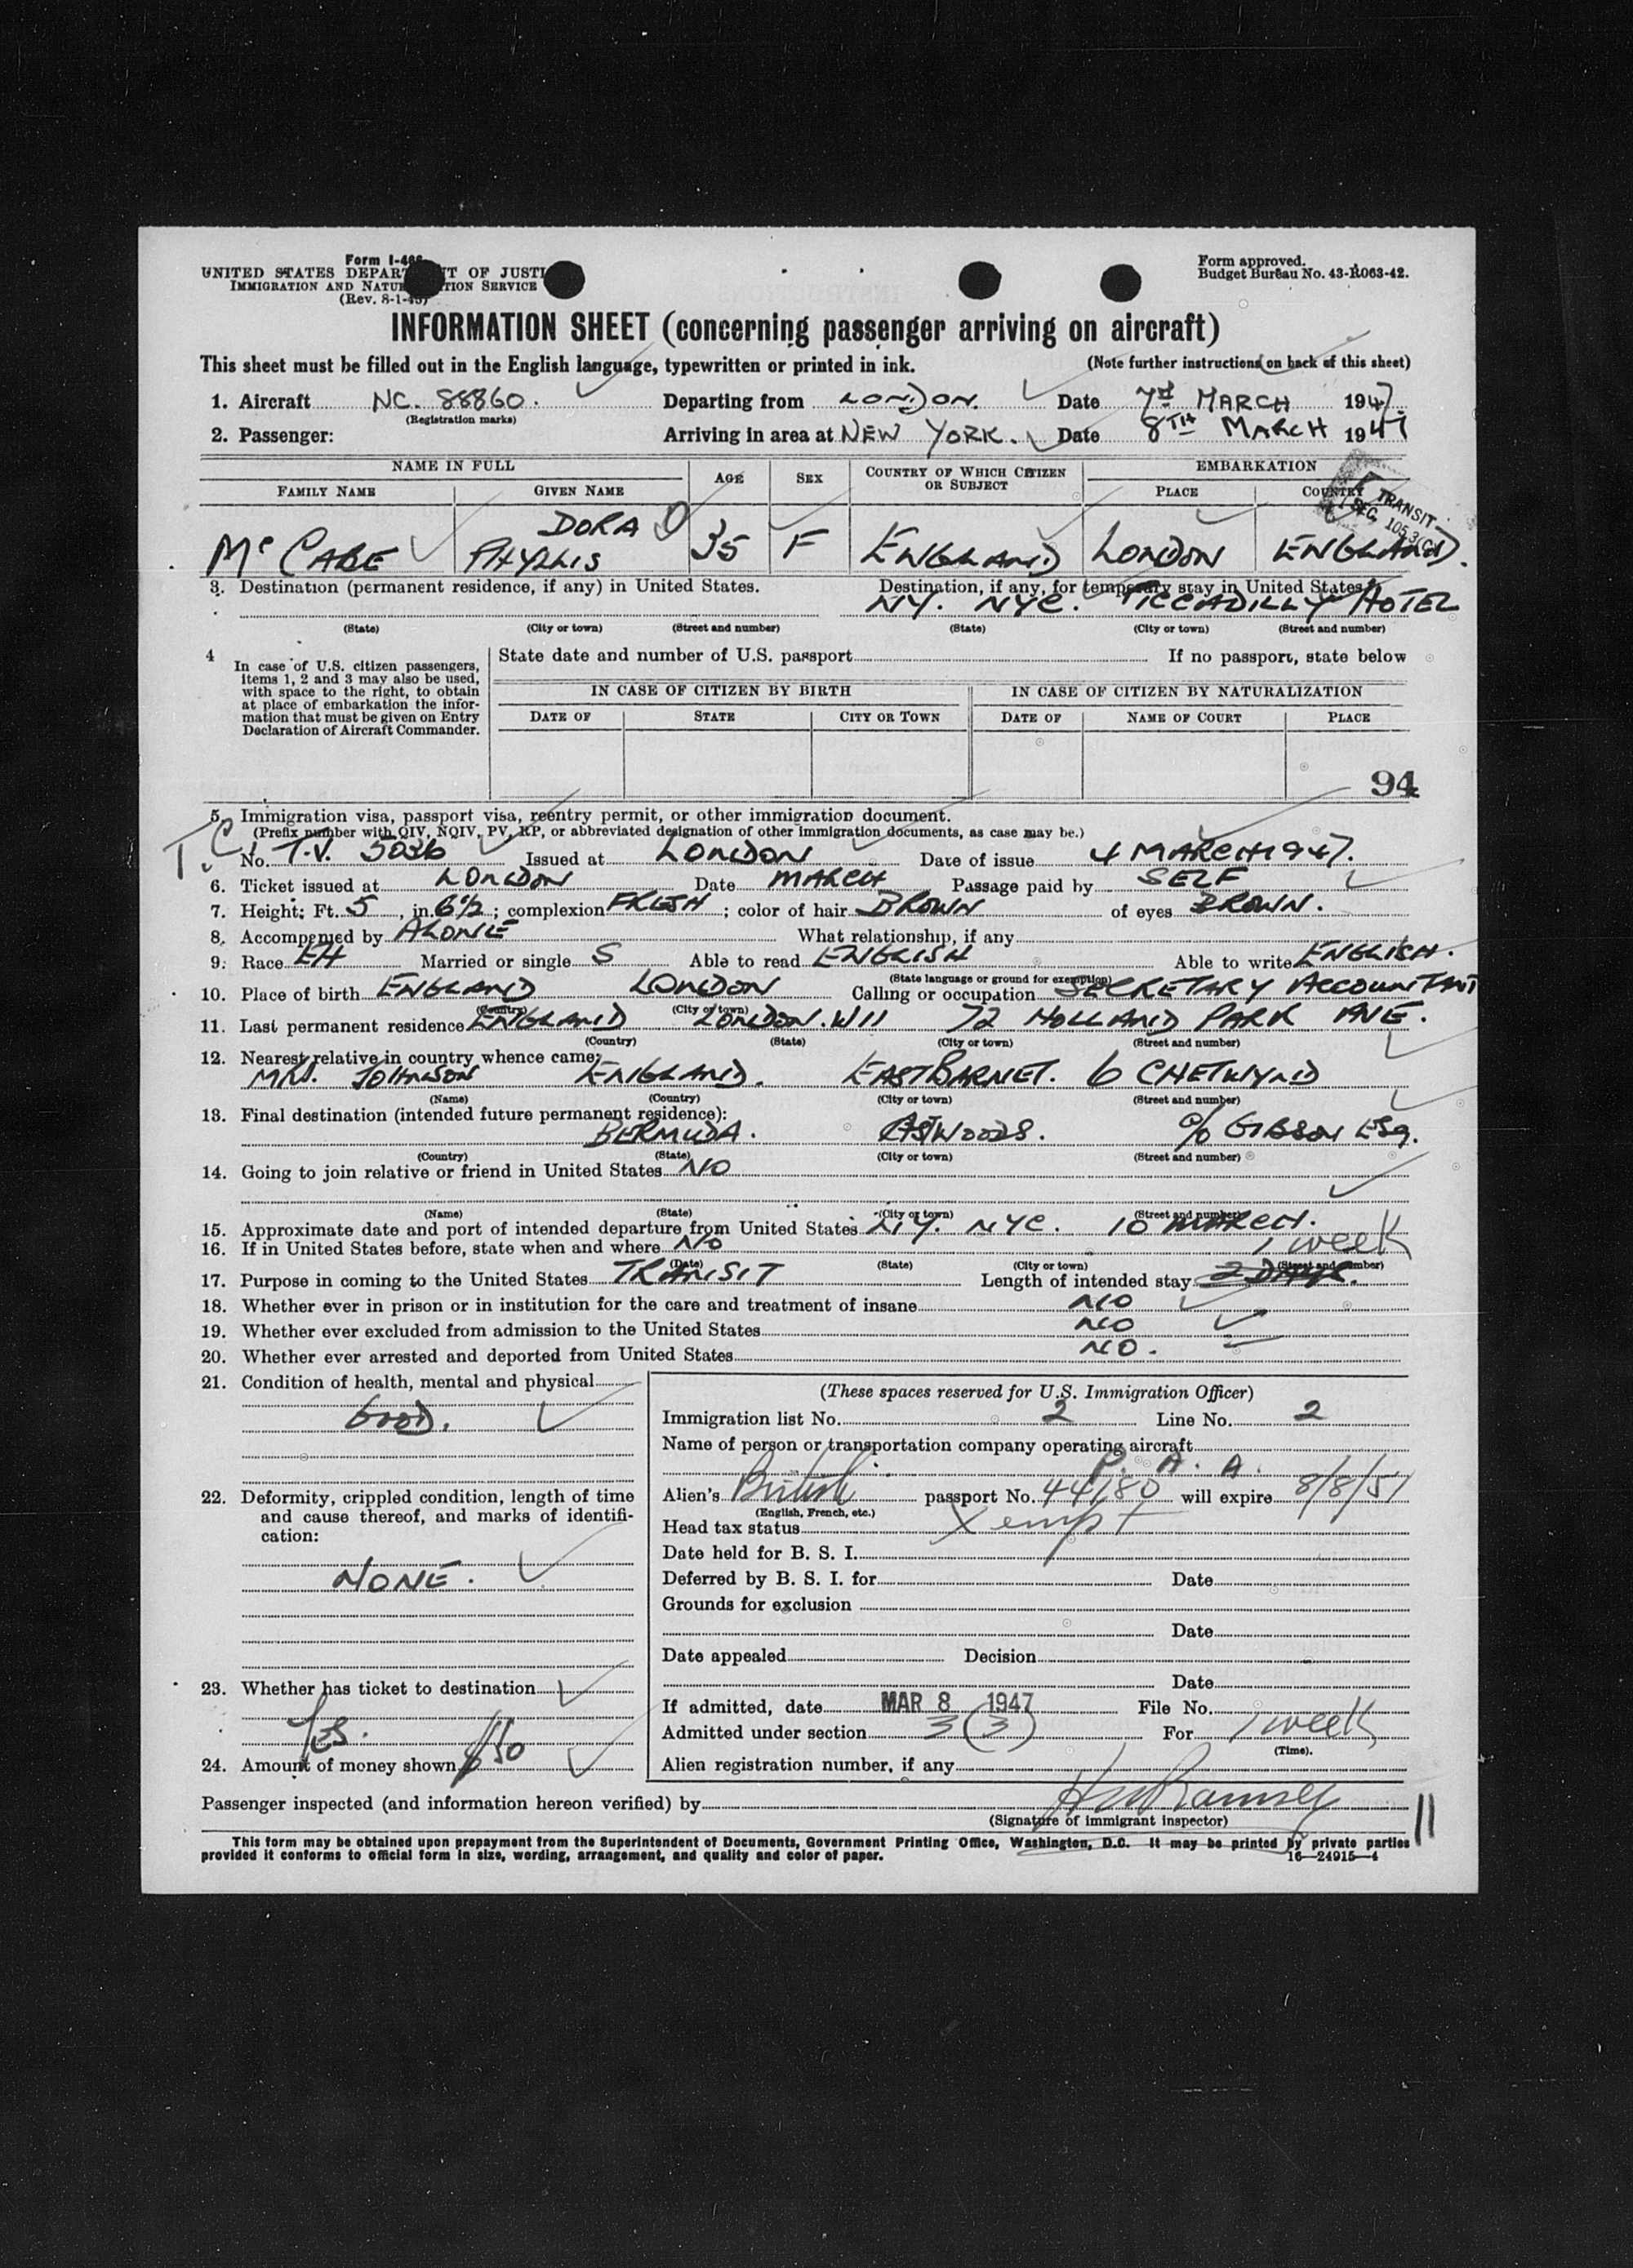 Form I-466
UNITED STATES DEPARTMENT OF JUSTICE
IMMIGRATION AND NATURALIZATION SERVICE
(Rev. 8-1-45)
Form approved.
Budget Bureau No. 43-R063-42.
INFORMATION SHEET (concerning passenger arriving on aircraft)
This sheet must be filled out in the English language, typewritten or printed in ink. (Note further instructions on back of this sheet)
1. Aircraft NC. 88860. Departing from LONDON. Date 7 MARCH 1947.
(Registration marks)
2. Passenger: Arriving in area at NEW YORK. Date 8TH MARCH 1947
NAME IN FULL AGE SEX COUNTRY OF WHICH CITIZEN OR SUBJECT EMBARKATION
FAMILY NAME GIVEN NAME PLACE COUNTRY
TRANSIT
SEC. 105.3
McCABE DORA PHYLLIS 35 F ENGLAND LONDON ENGLAND.
3. Destination (permanent residence, if any) in United States. Destination, if any, for temporary stay in United States
NY. NYC. PICCADILLY HOTEL
(State) (City or town) (Street and number) (State) (City or town) (Street and number)
4 In case of U.S. citizen passengers, items 1, 2 and 3 may also be used, with space to the right, to obtain at place of embarkation the information that must be given on Entry Declaration of Aircraft Commander.
State date and number of U.S. passport If no passport, state below
IN CASE OF CITIZEN BY BIRTH IN CASE OF CITIZEN BY NATURALIZATION
DATE OF STATE CITY OR TOWN DATE OF NAME OF COURT PLACE
94
5. Immigration visa, passport visa, reentry permit, or other immigration document.
(Prefix number with QIV, NQIV, PV, RP, or abbreviated designation of other immigration documents, as case may be.)
T.C.
No. T.V. 5036 Issued at LONDON Date of issue 4 MARCH 1947.
6. Ticket issued at LONDON Date MARCH Passage paid by SELF
7. Height: Ft. 5, in. 6½; complexion FRESH; color of hair BROWN of eyes BROWN.
8. Accompanied by ALONE What relationship, if any
9. Race Married or single S Able to read ENGLISH Able to write ENGLISH.
(State language or ground for exemption)
10. Place of birth ENGLAND LONDON Calling or occupation SECRETARY ACCOUNTANT
(Country) (City or town)
11. Last permanent residence ENGLAND LONDON. W11 72 HOLLAND PARK AVE.
(Country) (State) (City or town) (Street and number)
12. Nearest relative in country whence came:
MRS. JOHNSON ENGLAND. EAST BARNET. 6 CHETWYND
(Name) (Country) (City or town) (Street and number)
13. Final destination (intended future permanent residence):
BERMUDA. ASTWOODS. c/o GIBSON ESQ.
(Country) (State) (City or town) (Street and number)
14. Going to join relative or friend in United States NO
(Name) (State) (City or town) (Street and number)
15. Approximate date and port of intended departure from United States N.Y. NYC. 10 MARCH.
16. If in United States before, state when and where NO
(Date) (State) (City or town) (Street and number)
1 week
17. Purpose in coming to the United States TRANSIT Length of intended stay 2 DAYS.
18. Whether ever in prison or in institution for the care and treatment of insane NO
19. Whether ever excluded from admission to the United States NO
20. Whether ever arrested and deported from United States NO.
21. Condition of health, mental and physical
GOOD.
22. Deformity, crippled condition, length of time and cause thereof, and marks of identification:
NONE.
23. Whether has ticket to destination
YES.
24. Amount of money shown $50
(These spaces reserved for U.S. Immigration Officer)
Immigration list No. 2 Line No. 2
Name of person or transportation company operating aircraft
P. A. A.
Alien's British passport No. 44180 will expire 8/8/51
(English, French, etc.)
Head tax status Xempt
Date held for B. S. I.
Deferred by B. S. I. for Date
Grounds for exclusion
Date
Date appealed Decision
Date
If admitted, date MAR 8 1947 File No.
Admitted under section 3(3) For 1 week
(Time).
Alien registration number, if any
Passenger inspected (and information hereon verified) by
(Signature of immigrant inspector)
11
This form may be obtained upon prepayment from the Superintendent of Documents, Government Printing Office, Washington, D.C. It may be printed by private parties
provided it conforms to official form in size, wording, arrangement, and quality and color of paper. 16—24915-4